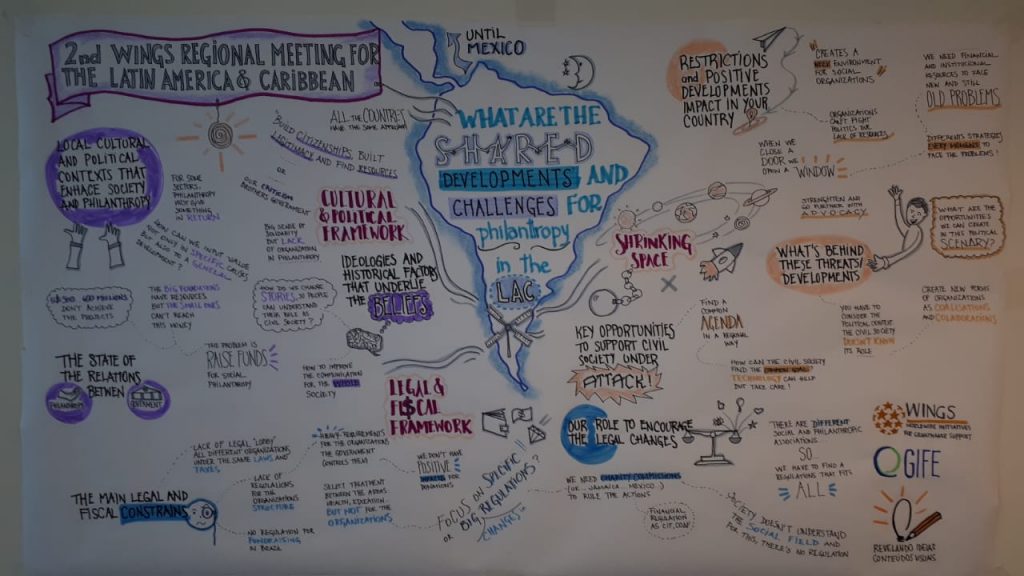 2nd WINGS REGIONAL MEETING FOR
THE LATIN AMERICA & CARIBBEAN
UNTIL
MEXICO
WHAT ARE THE
SHARED
DEVELOPMENTS AND
CHALLENGES FOR
philantropy
in the
LAC
ALL THE COUNTRIES
HAVE THE SAME APPROACH
"BUILD CITIZENSHIPS, BUILT
LEGITIMACY AND FIND RESOURCES
OR
OUR CRITICISM
BROTHERS GOVERNMENT
LOCAL CULTURAL
AND POLITICAL
CONTEXTS THAT
ENHACE SOCIETY
AND PHILANTHROPY
FOR SOME
SECTORS
PHILANTROPY
MUST GIVE
SOMETHING
IN RETURN
HOW CAN WE INPUT VALUE
NOT ONLY IN SPECIFIC CAUSES
BUT ALSO TO A GENERAL
DEVELOPMENT?
CULTURAL
& POLITICAL
FRAMEWORK
BIG SENSE OF
SOLIDARITY
BUT LACK
OF ORGANIZATION
IN PHILANTROPY
IDEOLOGIES AND
HISTORICAL FACTORS
THAT UNDERLIE
THE BELIEFS
600 MILLIONS
DON'T ACHIEVE
THE PROJECTS
THE BIG FOUNDATIONS
HAVE RESOURCES
BUT THE SMALL ONES
CAN'T REACH
THIS MONEY
HOW DO WE CHANGE
STORIES, SO PEOPLE
CAN UNDERSTAND
THEIR ROLE AS
CIVIL SOCIETY?
THE PROBLEM IS
RAISE FUNDS
FOR SOCIAL
PHILANTROPY
HOW TO IMPROVE
THE COMMUNICATION
FOR THE WHOLE
SOCIETY
THE STATE OF
THE RELATIONS
BETWEN
PHILANTROPY
GOVERNMENT
LEGAL &
FI$CAL
FRAMEWORK
LACK OF LEGAL "LOBBY"
ALL DIFFERENT ORGANIZATIONS
UNDER THE SAME LAWS AND
TAXES
HEAVY REQUIREMENTS
FOR THE ORGANIZATIONS
THE GOVERNMENT
CONTROLS THEM
WE DON'T HAVE
POSITIVE
FOR
DONATIONS
LACK OF
REGULATIONS
FOR THE
ORGANIZATIONS
STRUCTURE
SELECT TREATMENT
BETWEEN THE AREAS
HEALTH, EDUCATION...
BUT NOT FOR THE
ORGANIZATIONS
THE MAIN LEGAL AND
FISCAL CONSTRAINS
NO REGULATION FOR
FUNDRAISING
IN BRAZIL
FOCUS ON SPECIFIC
OR BIG REGULATIONS?
CHANGES
RESTRICTIONS
and POSITIVE
DEVELOPMENTS
IMPACT IN YOUR
COUNTRY
CREATES A
NEW ENVIRONMENT
FOR SOCIAL
ORGANIZATIONS
WE NEED FINANCIAL
AND INSTITUCIONAL
RESOURCES TO FACE
NEW AND STILL
OLD PROBLEMS
ORGANIZATIONS
CAN'T FIGHT
POLITICS FOR
LACK OF RESOURCES
DIFFERENTS STRATEGIES
EVERY MOMENTS TO
FACE THE PROBLEMS!
WHEN WE
CLOSE A
DOOR WE
OPEN A WINDOW
SHRINKING
SPACE
STRENGTHEN AND
GO FURTHER WITH
ADVOCACY
WHAT ARE THE
OPPORTUNITIES
WE CAN CREATE
IN THIS POLITICAL
SCENARY?
WHAT'S BEHIND
THESE THREATS
DEVELOPMENTS
CREATE NEW FORMS
OF ORGANIZATIONS
AS COALISATIONS
AND COLLABORATIONS
YOU HAVE TO
CONSIDER THE
POLITICAL CONTEXT
THE CIVIL SOCIETY
DOESN'T KNOW
ITS ROLE
FIND A
COMMON
AGENDA
IN A REGIONAL
WAY
KEY OPPORTUNITIES
TO SUPPORT CIVIL
SOCIETY UNDER
ATTACK!
HOW CAN THE CIVIL SOCIETY
FIND THE COMMON GOAL
TECHNOLOGY CAN HELP
BUT TAKE CARE!
OUR ROLE TO ENCOURAGE
LEGAL CHANGES
THERE ARE DIFFERENT
SOCIAL AND PHILANTHROPIC
ASSOCIATIONS
SO...
WE HAVE TO FIND A
REGULATIONS THAT FITS
ALL
WE NEED CHARITY COMMISSIONS
(OR JAMAICA MEXICO...)
TO RULE THE ACTIONS
FINANCIAL
REGULATION
AS
SOCIETY DOESN'T UNDERSTAND
THE SOCIAL FIELD AND
FOR THIS, THERE'S NO REGULATION
WINGS
WORLDWIDE INITIATIVES
FOR GRANTMAKER SUPPORT
GIFE
REVELANDO IDEIAS
CONTEÚDOS VISUAIS